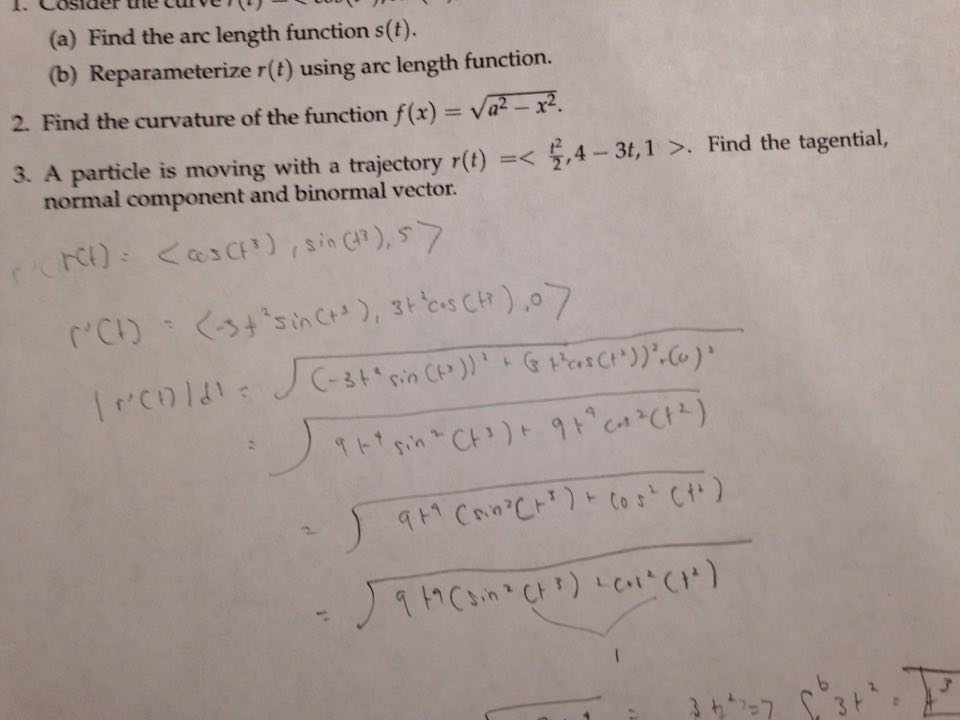 1. Cosider the curve r(t) = <
(a) Find the arc length function s(t).
(b) Reparameterize r(t) using arc length function.
2. Find the curvature of the function f(x) = √a² − x².
3. A particle is moving with a trajectory r(t) =< t²/2, 4 − 3t, 1 >. Find the tagential,
normal component and binormal vector.
r(t) = <cos(t³), sin(t³), 5>
r'(t) = <-3t²sin(t³), 3t²cos(t³), 0>
|r'(t)|dt = √(-3t² sin(t³))² + (3t²cos(t²))² + (0)²
= √9t⁴ sin²(t³) + 9t⁴ cos²(t²)
= √9t⁴ (sin²(t³) + cos²(t²)
= √9t⁴(sin²(t³) + cos²(t²)
1
= 3t² => ∫ᵇ 3t² = t³